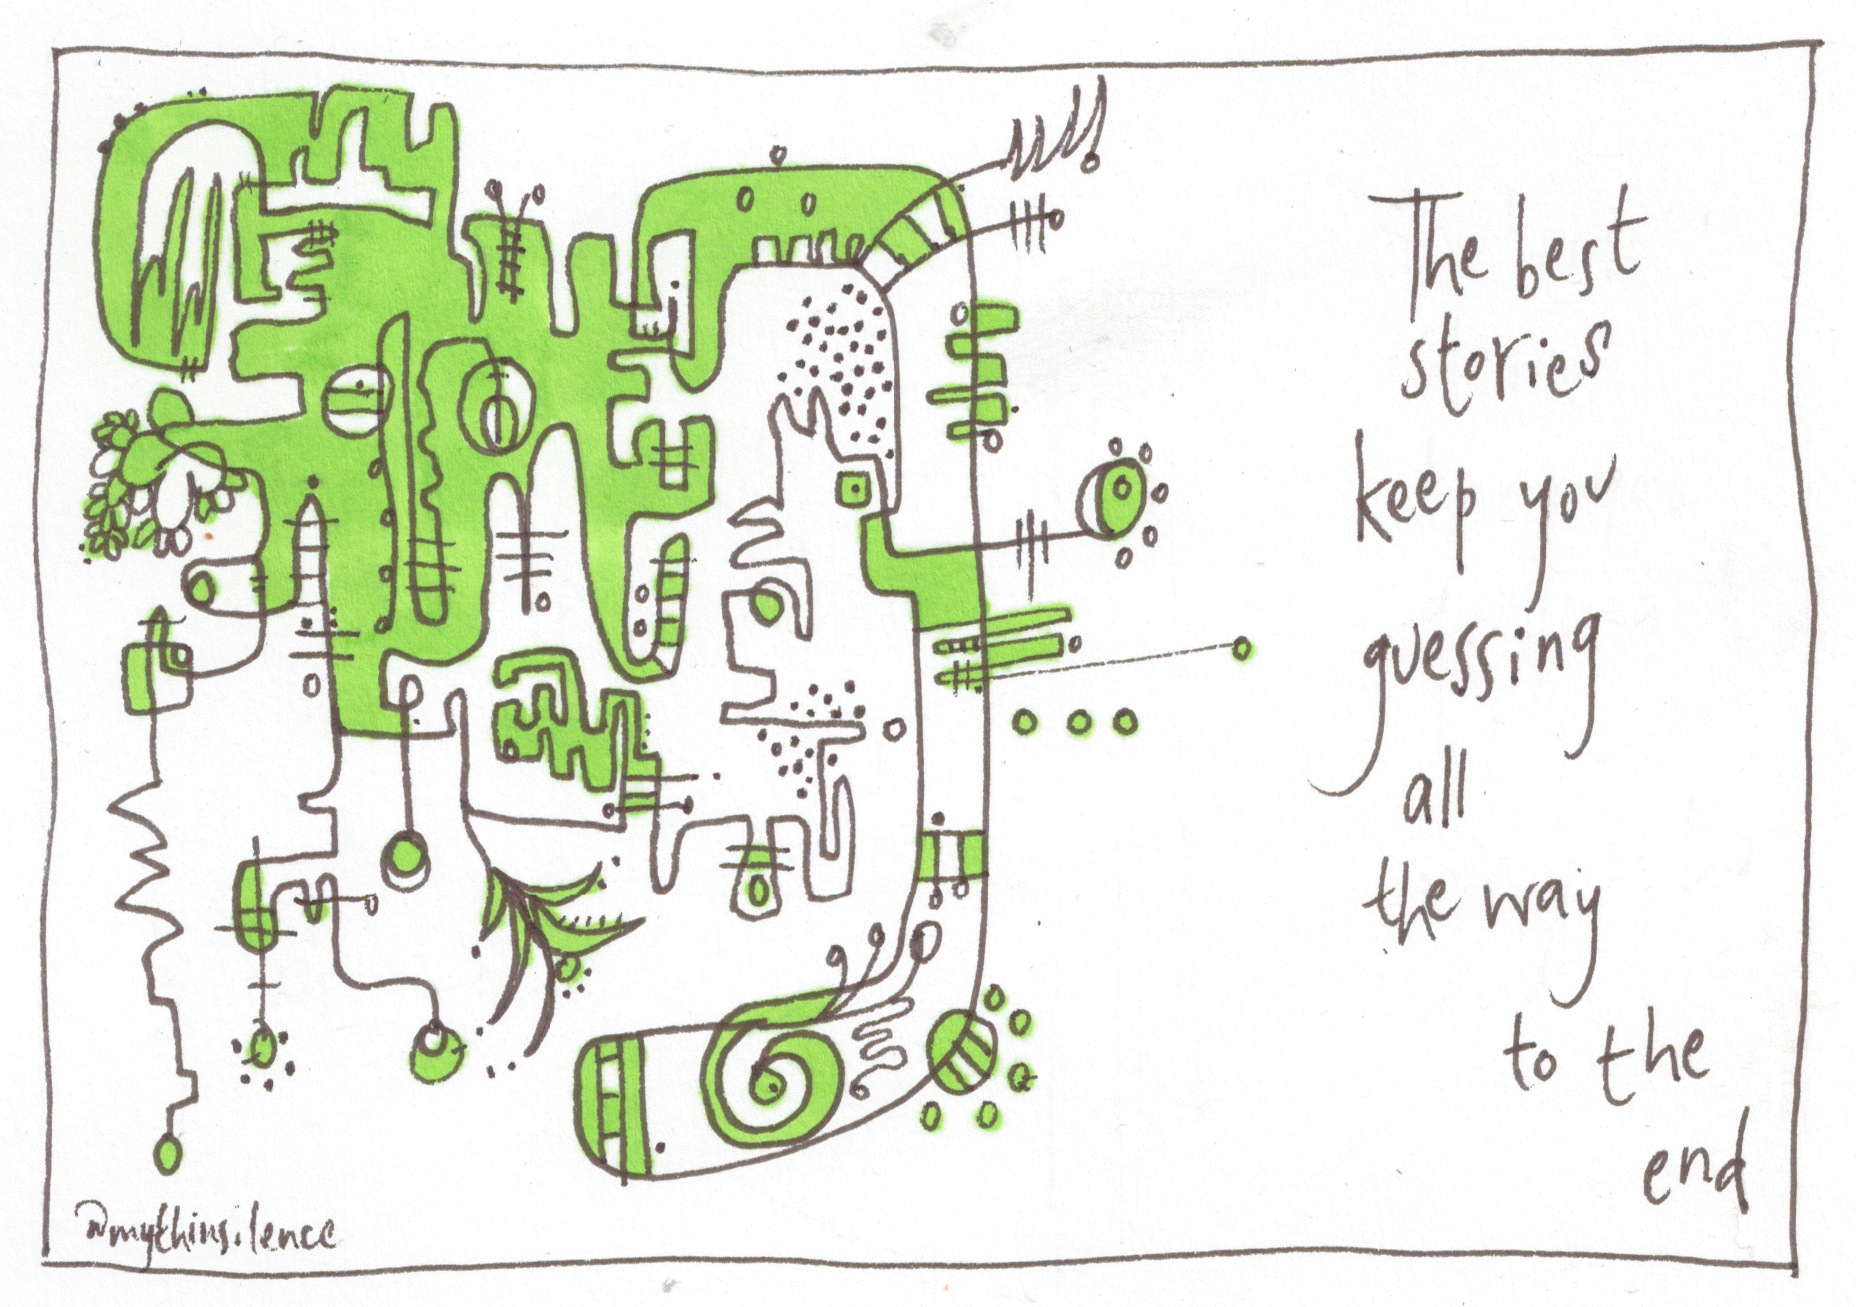 The best
stories
keep you
guessing
all
the way
to the
end
@mythinsilence